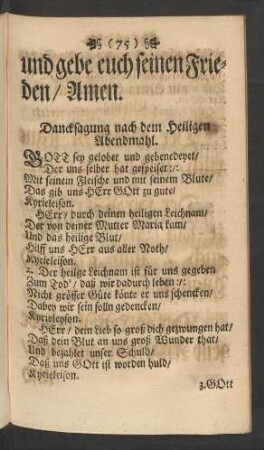 (75)
und gebe euch seinen Frie-
den/ Amen.
Dancksagung nach dem Heiligen
Abendmahl.
GOTT sey gelobet und gebenedeyet/
Der uns selber hat gespeiset :/:
Mit seinem Fleische und mit seinem Blute/
Das gib uns HErr GOtt zu gute/
Kyrieleison.
HErr/ durch deinen heiligen Leichnam/
Der von deiner Mutter Maria kam/
Und das heilige Blut/
Hilff uns HErr aus aller Noth/
Kyrieleison.
2. Der heilge Leichnam ist für uns gegeben
Zum Tod/ daß wir dadurch leben :/:
Nicht grösser Güte könte er uns schencken/
Dabey wir sein solln gedencken/
Kyrieleyson.
HErr/ dein Lieb so groß dich gezwungen hat/
Daß dein Blut an uns groß Wunder that/
Und bezahlet unser Schuld/
Daß uns GOtt ist worden huld/
Kyrieleison.
3. GOtt